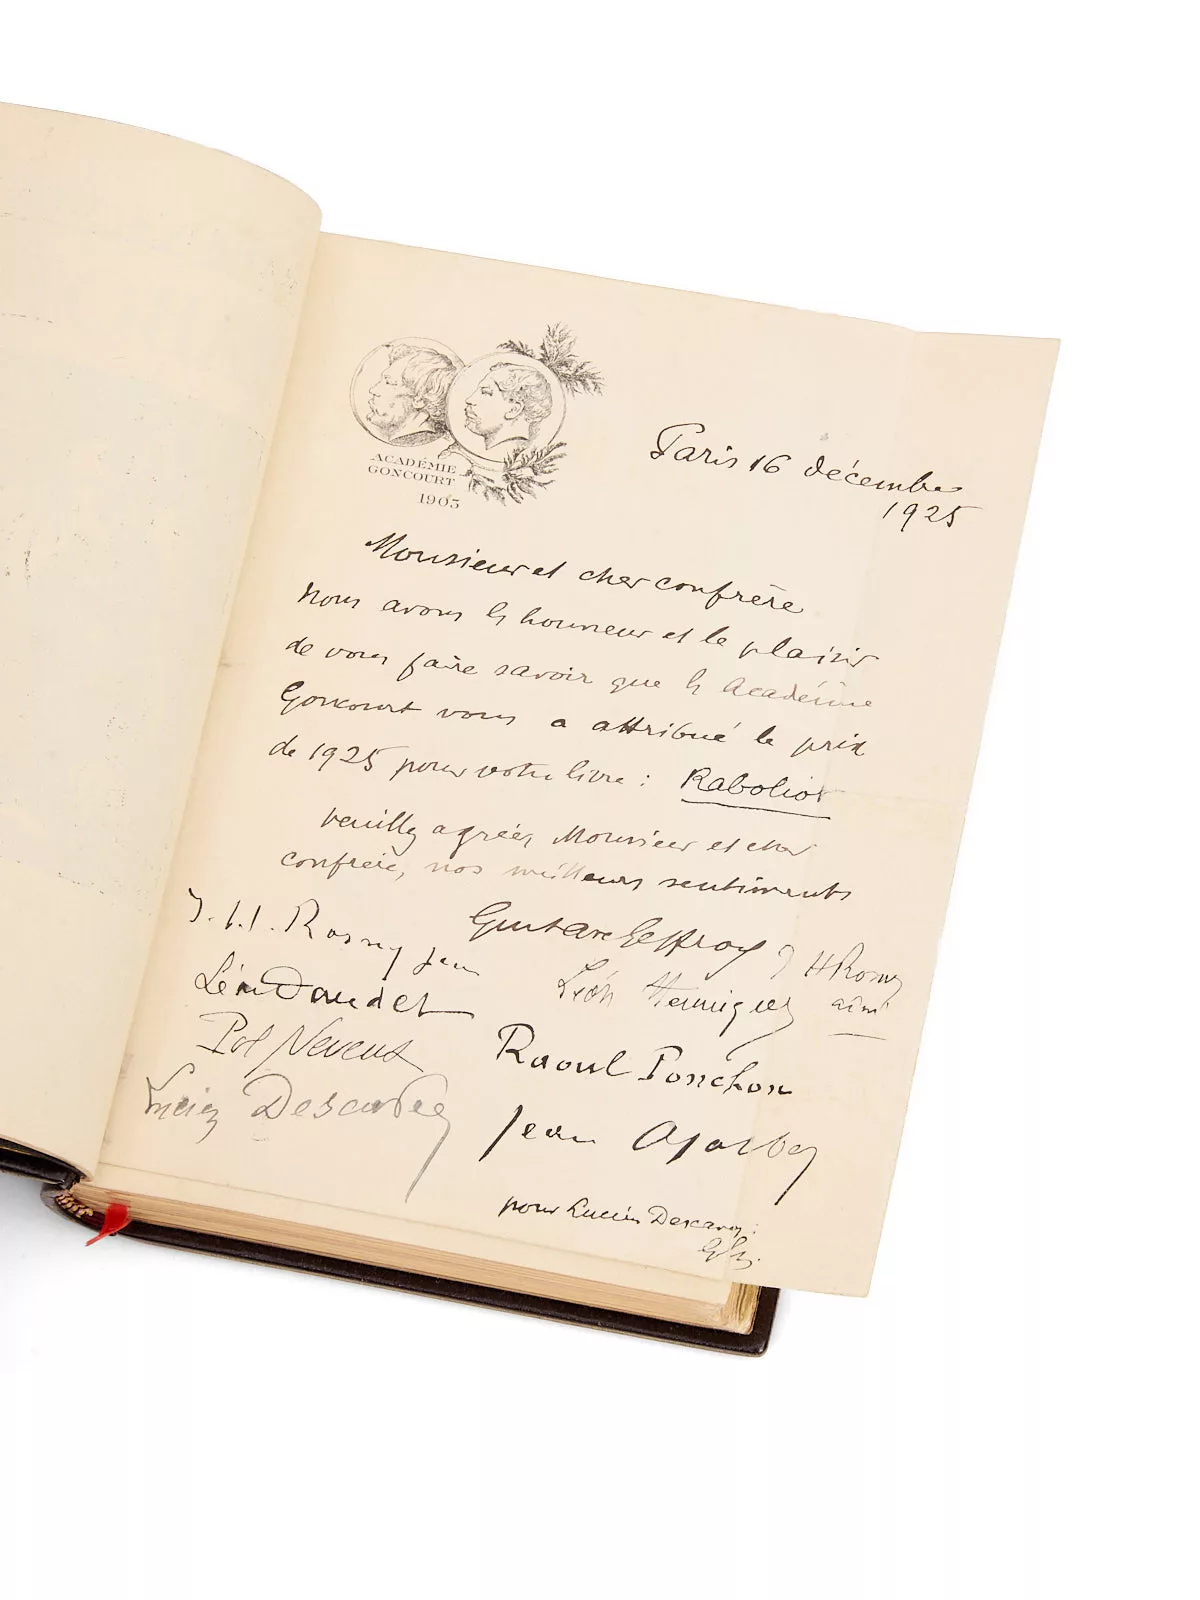 ACADÉMIE
GONCOURT
1903
Paris 16 décembre
1925
Monsieur et cher confrère
Nous avons l'honneur et le plaisir
de vous faire savoir que l'Académie
Goncourt vous a attribué le prix
de 1925 pour votre livre : Raboliot
veuillez agréer, Monsieur et cher
confrère, nos meilleurs sentiments
Gustave Geffroy
J. H. Rosny jeune
J H Rosny
aîné
Léon Daudet
Léon Hennique
Pol Neveux
Raoul Ponchon
Lucien Descaves
Jean Ajalbert
pour Lucien Descaves :